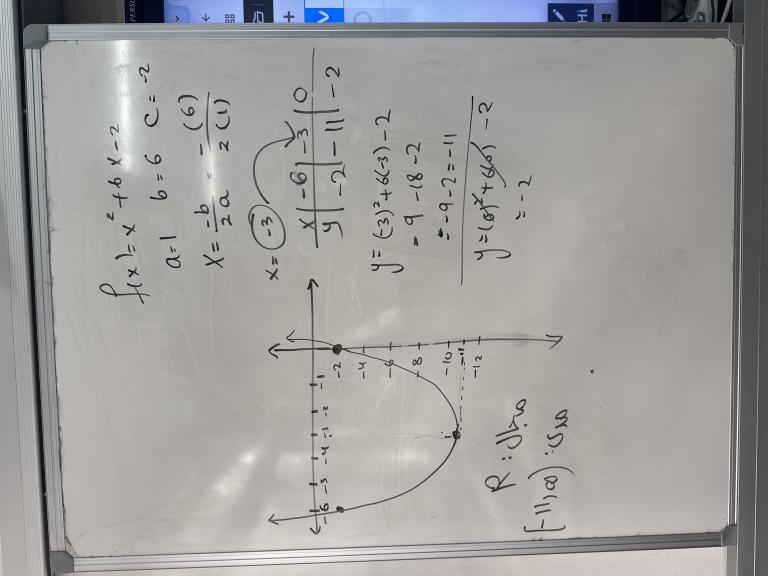 f(x) = x² + 6x - 2
a = 1 b = 6 c = -2
x = -b/2a = -(6)/2(1)
x = -3
x | -6 | -3 | 0
y | -2 | -11 | -2
y = (-3)² + 6(-3) - 2
= 9 - 18 - 2
= -9 - 2 = -11
y = (0)² + 6(0) - 2
= -2
-6 -5 -4 -3 -2 -1
-2
-4
-6
-8
-10
-11
-12
R :
[-11, ∞) :